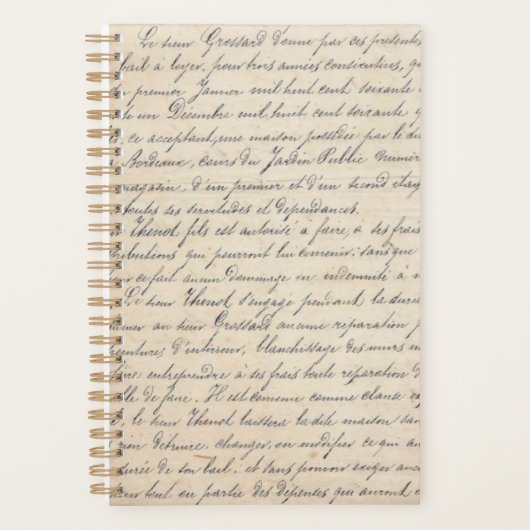 Le sieur Grossard donne par ces présentes
bail à loyer, pour trois années consécutives, qu
premier Janvier mil huit cent soixante
te un Décembre mil huit cent soixante q
ce acceptant, une maison possédée par le di
Bordeaux, cours du Jardin Public numér
magasin, d'un premier et d'un second étag
toutes ses servitudes et dépendances.
Thenot fils est autorisé à faire, à ses frais
tributions qui pourront lui convenir; sans que
ce fait aucun dommage ou indemnité à
Le sieur Thenot s'engage pendant la duré
au sieur Grossard aucune réparation
peintures d'intérieur, blanchissage des murs
entreprendre à ses frais toute réparation
de faire. Il est convenu comme clause ex
le sieur Thenot laissera ladite maison san
rien détruire, changer, ou modifier ce qui au
durée de son bail; et sans pouvoir exiger auc
tout, ou partie des dépenses qui auront